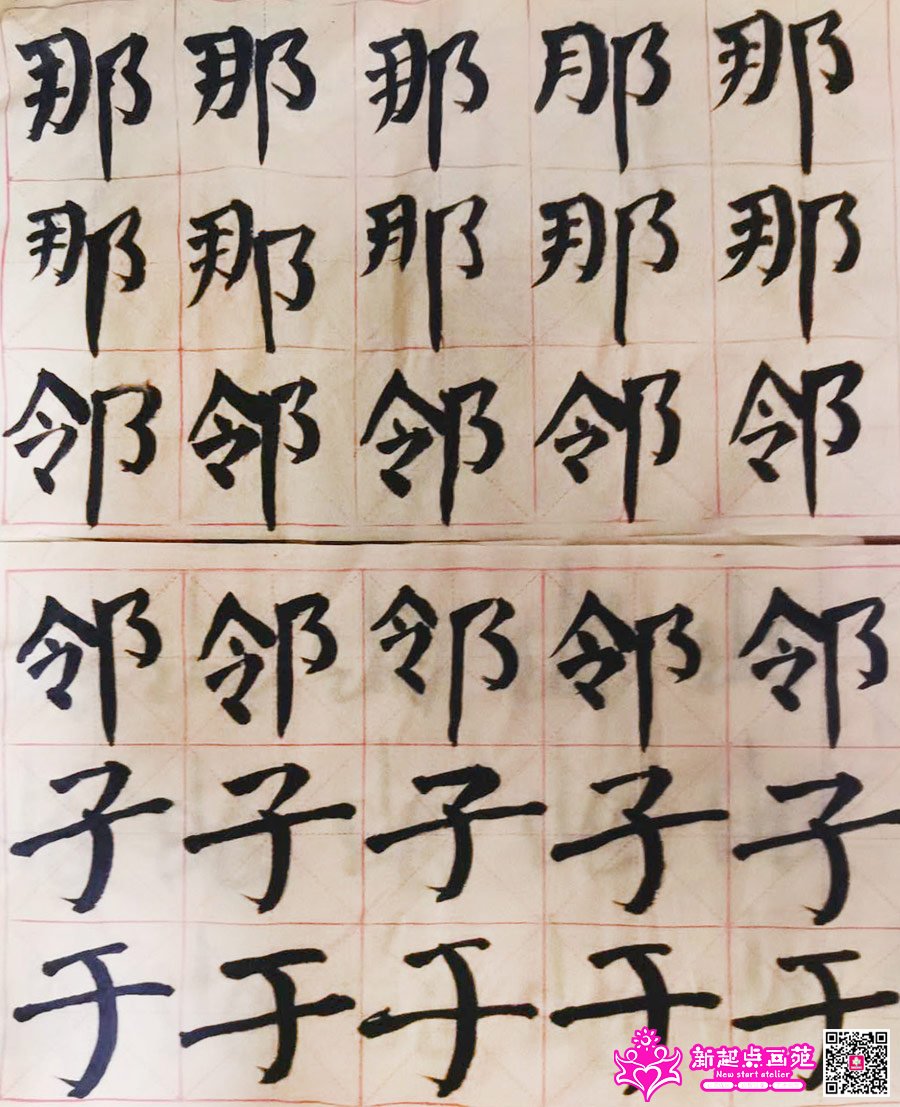 那那那那那
那那那那那
邻邻邻邻邻
邻邻邻邻邻
子子子子子
于于于于于
新起点画苑
New start atelier